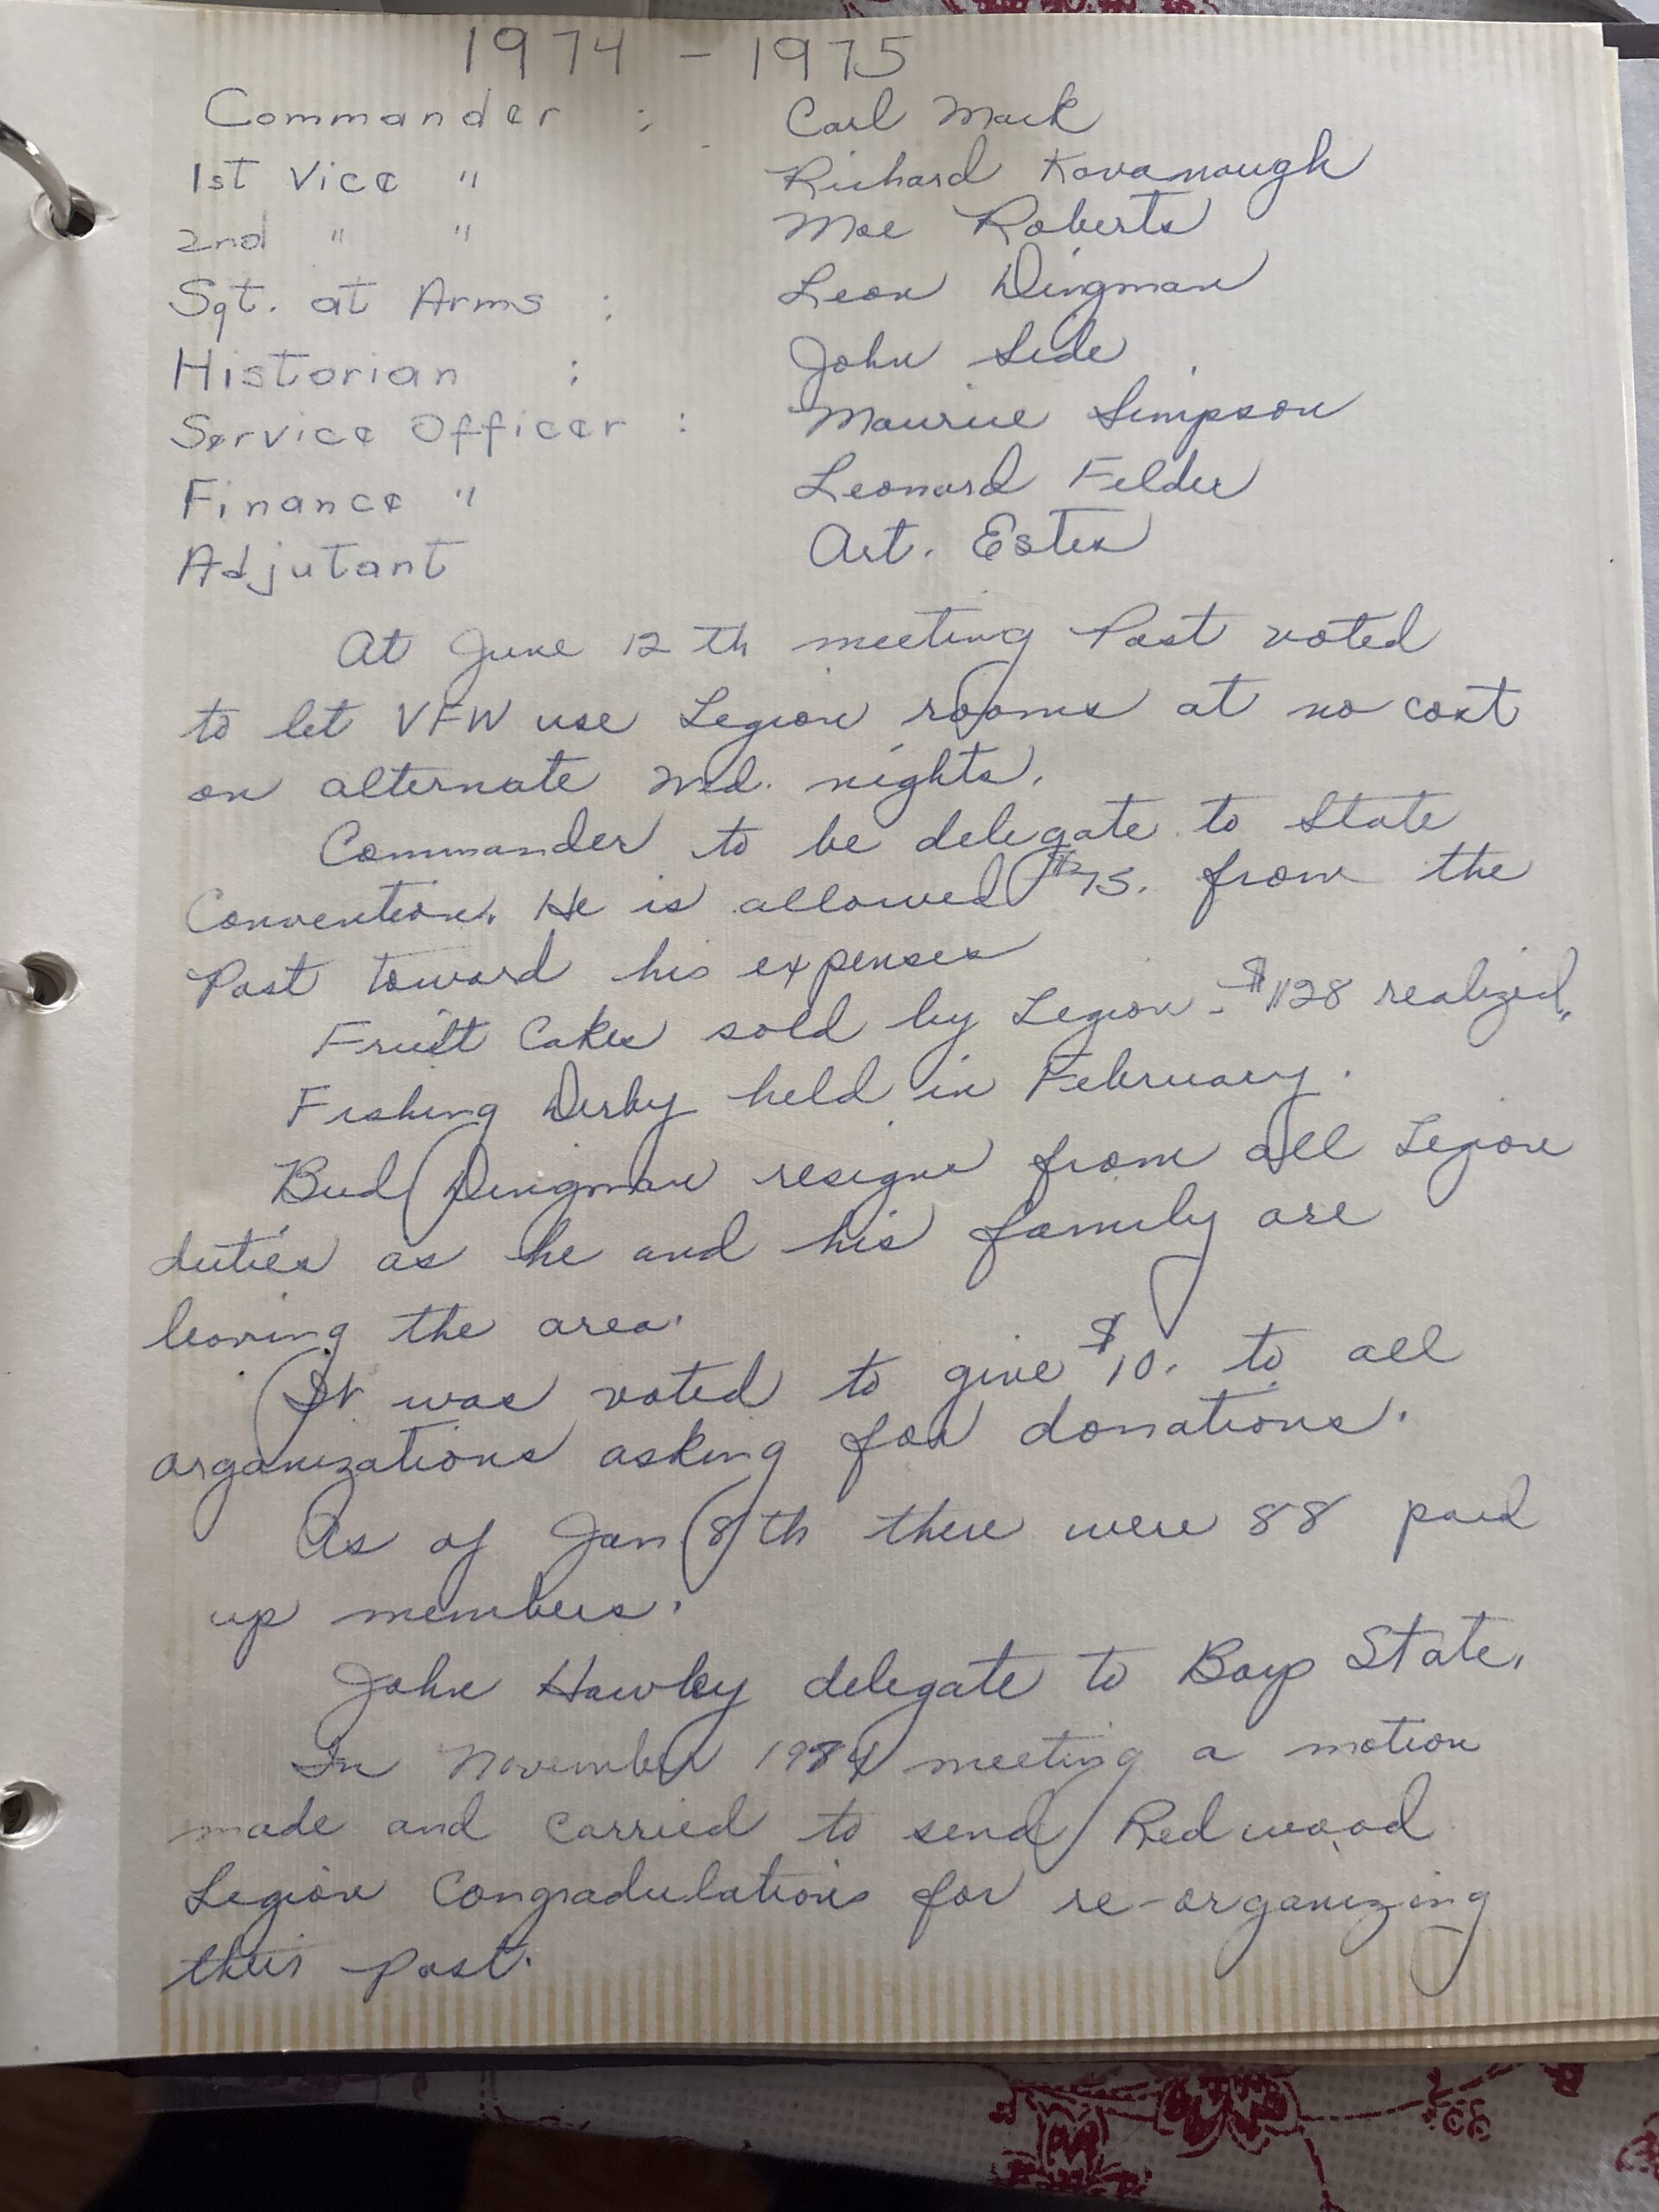 1974 - 1975
Commander : Carl Mack
1st Vice " Richard Kavanaugh
2nd " " Moe Roberts
Sgt. at Arms : Leon Dingman
Historian : John Side
Service Officer : Maurice Simpson
Finance " Leonard Felder
Adjutant Art. Estes
At June 12th meeting Post voted
to let VFW use Legion rooms at no cost
on alternate Wed. nights.
Commander to be delegate to State
Convention. He is allowed $75. from the
Post toward his expenses
Fruit Cakes sold by Legion - $128 realized.
Fishing Derby held in February.
Bud Dingman resigns from all Legion
duties as he and his family are
leaving the area.
It was voted to give $10. to all
organizations asking for donations.
As of Jan 8th there were 88 paid
up members.
John Hawley delegate to Boys State.
In November 1974 meeting a motion
made and carried to send Redwood
Legion Congradulations for re-organizing
their post.